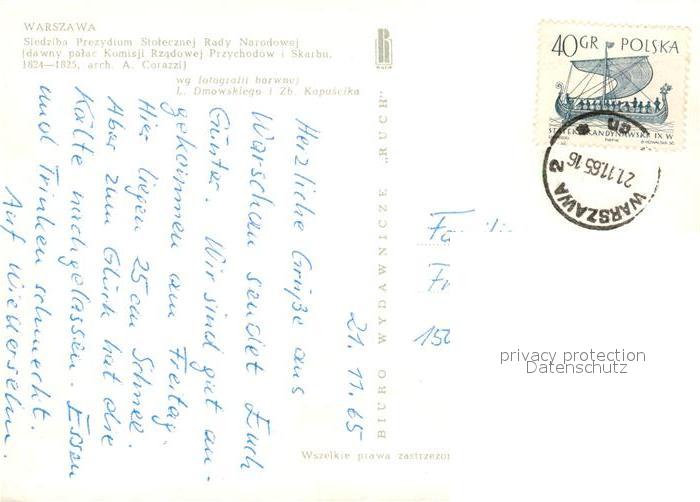 WARSZAWA
Siedziba Prezydium Stołecznej Rady Narodowej
(dawny pałac Komisji Rządowej Przychodów i Skarbu,
1824—1825, arch. A. Corazzi)
wg fotografii barwnej
L. Dmowskiego i Zb. Kapuścika
RUCH
BIURO WYDAWNICZE „RUCH”
Wszelkie prawa zastrzeżon
40GR POLSKA
STATEK SKANDYNAWSKI IX W
WARSZAWA 2
21.11.65 16
21.11.65
Herzliche Grüße aus
Warschau sendet Euch
Günter. Wir sind gut an-
gekommen am Freitag.
Hier liegen 25 cm Schnee.
Aber zum Glück hat die
Kälte nachgelassen. Essen
und Trinken schmeckt.
Auf Wiedersehn.
Familie
Fr
150
privacy protection
Datenschutz